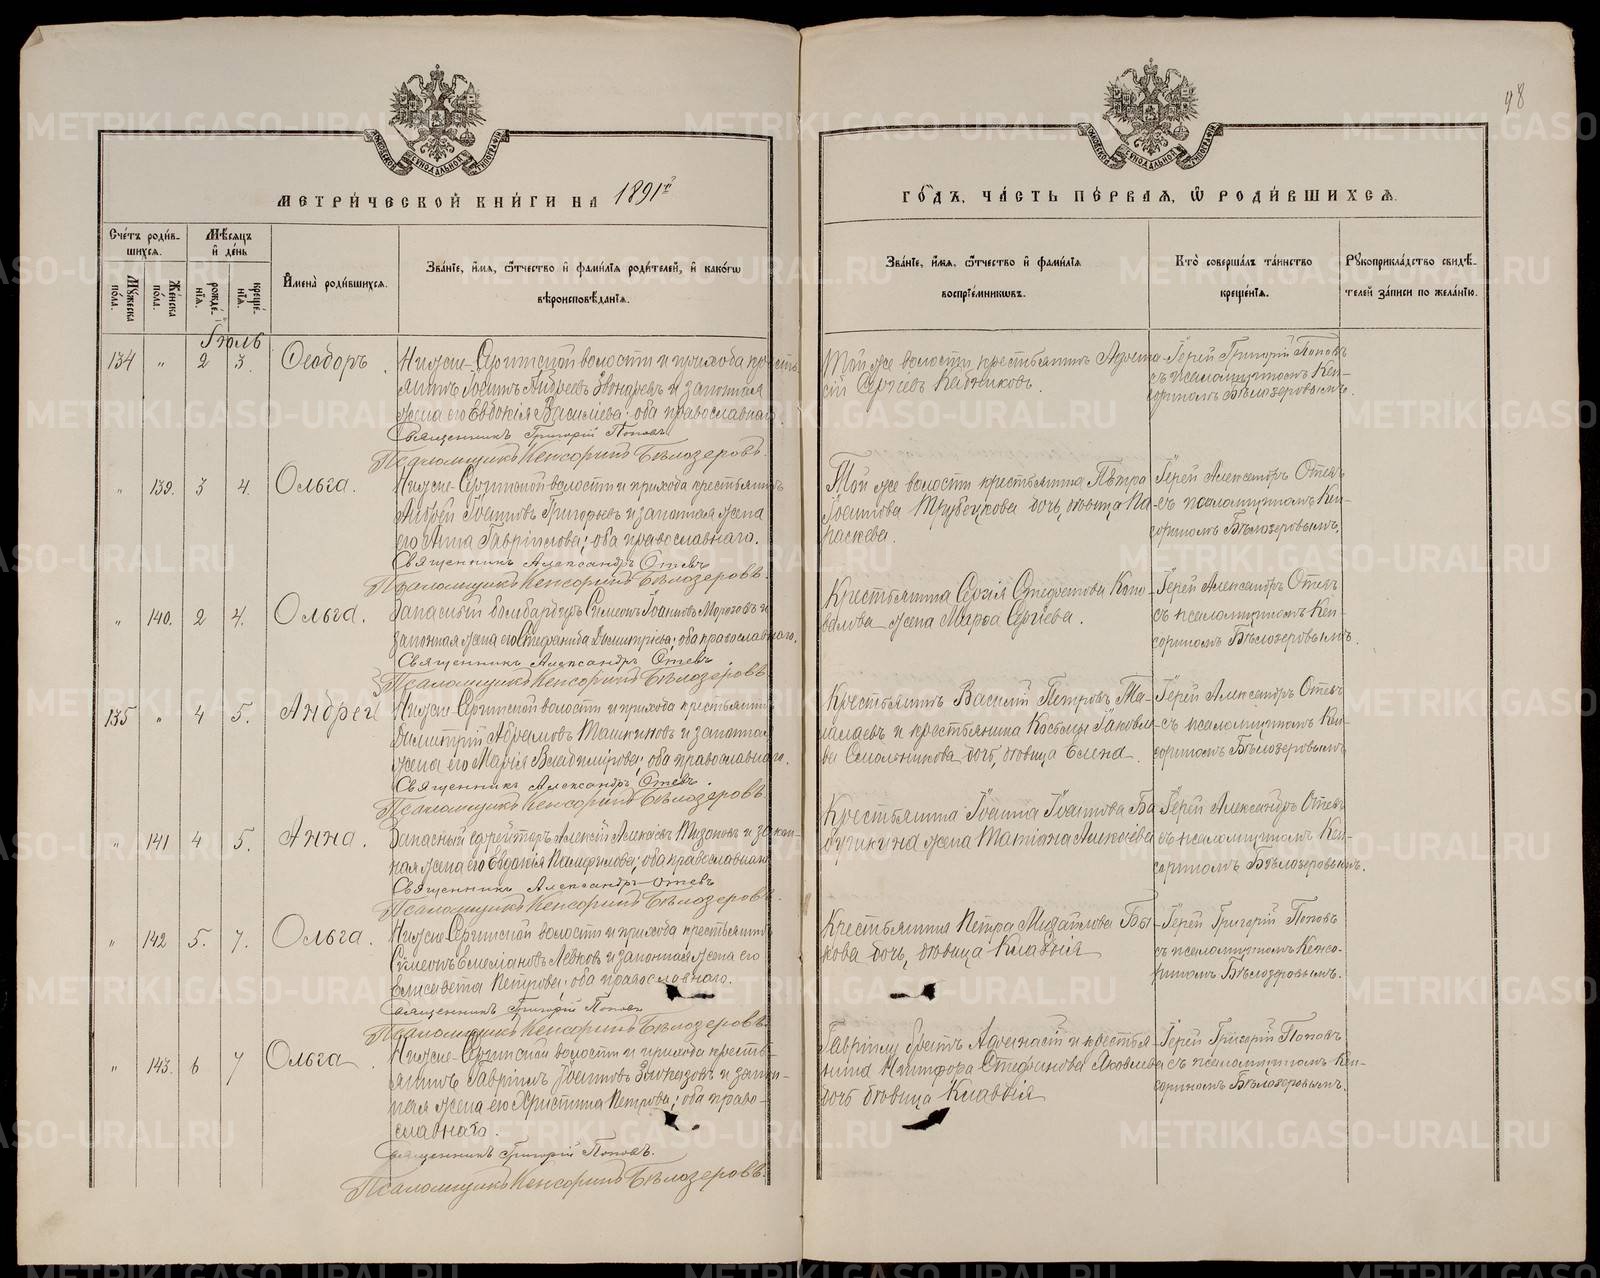 98
МЕТРИ́ЧЕСКОЙ КНИ́ГИ НА 1891й
ГО́ДЪ, ЧА́СТЬ ПЕ́РВАЯ, Ѽ РОДИ́ВШИХСЯ.
Сче́тъ роди́в-
шихся.
Мꙋ́жеска по́ла.
Же́нска по́ла.
Мѣ́сяцъ и҆ де́нь
рожде́-
нїѧ.
креще́-
нїѧ.
И҆мена̀ роди́вшихся.
Зва́нїе, и҆́мя, ѻ҆́тчество и҆ фами́лїя роди́телей, и҆ како́гѡ
вѣроисповѣ́данїя.
Зва́нїе, и҆́мя, ѻ҆́тчество и҆ фами́лїя
воспрїе́мникѡвъ.
Кто̀ соверша́лъ та́инство
креще́нїя.
Рꙋкоприкла́дство свидѣ́-
телей за́писи по жела́нїю.
Іюль
134 " 2 3. Ѳеодоръ.
Нижне-Сергинской волости и прихода кресть-
янинъ Іоаннъ Андреевъ и законная
жена его Евдокія Васильева; оба православнаго.
Священникъ Григорій Поповъ
Псаломщикъ Кенсоринъ Бѣлозеровъ.
Той же волости крестьянинъ
Сергѣевъ
Іерей Григорій Поповъ
съ псаломщикомъ Кен-
сориномъ Бѣлозеровымъ.
" 139. 3 4. Ольга.
Нижне-Сергинской волости и прихода крестьянинъ
Андрей Іоанновъ Григорьевъ и законная жена
его Анна Гавріилова; оба православнаго.
Священникъ Александръ Отевъ
Псаломщикъ Кенсоринъ Бѣлозеровъ.
Той же волости крестьянина Петра
Іоаннова Трубецкова дочь, дѣвица Па-
раскева.
Іерей Александръ Отевъ
съ псаломщикомъ Кен-
сориномъ Бѣлозеровымъ.
" 140. 2 4. Ольга.
Запасный бомбардиръ Симеонъ Іоанновъ Морозовъ и
законная жена его Стефанида Димитріева; оба православнаго.
Священникъ Александръ Отевъ.
Псаломщикъ Кенсоринъ Бѣлозеровъ.
Крестьянина Сергія Стефанова Коно-
валова жена Марѳа Сергіева.
Іерей Александръ Отевъ
съ псаломщикомъ Кен-
сориномъ Бѣлозеровымъ.
135 " 4 5. Андрей
Нижне-Сергинской волости и прихода крестьянинъ
Димитрій Абрамовъ и законная
жена его Марія Владимірова; оба православнаго.
Священникъ Александръ Отевъ.
Псаломщикъ Кенсоринъ Бѣлозеровъ.
Крестьянинъ Василій Петровъ Та-
лалаевъ и крестьянина Косьмы Іаковле-
ва Смольникова дочь, дѣвица Елена.
Іерей Александръ Отевъ
съ псаломщикомъ Кен-
сориномъ Бѣлозеровымъ
" 141 4 5. Анна.
Запасный ефрейторъ Алексій Алексѣевъ и закон-
ная жена его Евдокія Памфилова; оба православнаго
Священникъ Александръ Отевъ
Псаломщикъ Кенсоринъ Бѣлозеровъ.
Крестьянина Іоанна Іоаннова Ба-
бушкина жена Татіана Алексѣева
Іерей Александръ Отевъ
съ псаломщикомъ Кен-
сориномъ Бѣлозеровымъ.
" 142 5. 7. Ольга.
Нижне-Сергинской волости и прихода крестьянинъ
Симеонъ Емеліановъ Левковъ и законная жена его
Елисавета Петрова; оба православнаго.
Священникъ Григорій Поповъ
Псаломщикъ Кенсоринъ Бѣлозеровъ.
Крестьянина Петра Михаилова Бы-
кова дочь, дѣвица Клавдія
Іерей Григорій Поповъ
съ псаломщикомъ Кенсо-
риномъ Бѣлозеровымъ.
" 143. 6 7 Ольга.
Нижне-Сергинской волости и прихода кресть-
янинъ Гавріилъ Іоанновъ и закон-
ная жена его Христина Петрова; оба право-
славнаго.
Священникъ Григорій Поповъ.
Псаломщикъ Кенсоринъ Бѣлозеровъ.
Гавріилу братъ и крестья-
нина Никифора Стефанова Яковлева
дочь дѣвица Клавдія
Іерей Григорій Поповъ
съ псаломщикомъ Кен-
сориномъ Бѣлозеровымъ.
METRIKI.GASO-URAL.RU